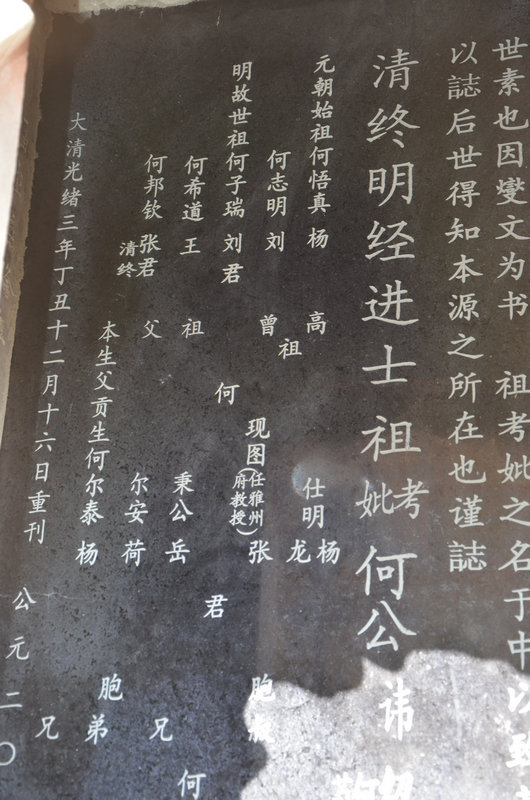 世素也因燮文为书 祖考妣之名于中以
以誌后世得知本源之所在也谨誌
清终明经进士祖考妣何公讳
元朝始祖何悟真杨 高 仕明杨
祖 龙
何志明刘 曾 现图(任雅州府教授)张 胞
明故世祖何子瑞刘君 何 君
何希道王 祖 秉公岳 何
何邦钦张君清终 父 尔安荷 兄
本生父贡生何尔泰杨 胞弟
大清光绪三年丁丑十二月十六日重刊 兄
公元二〇